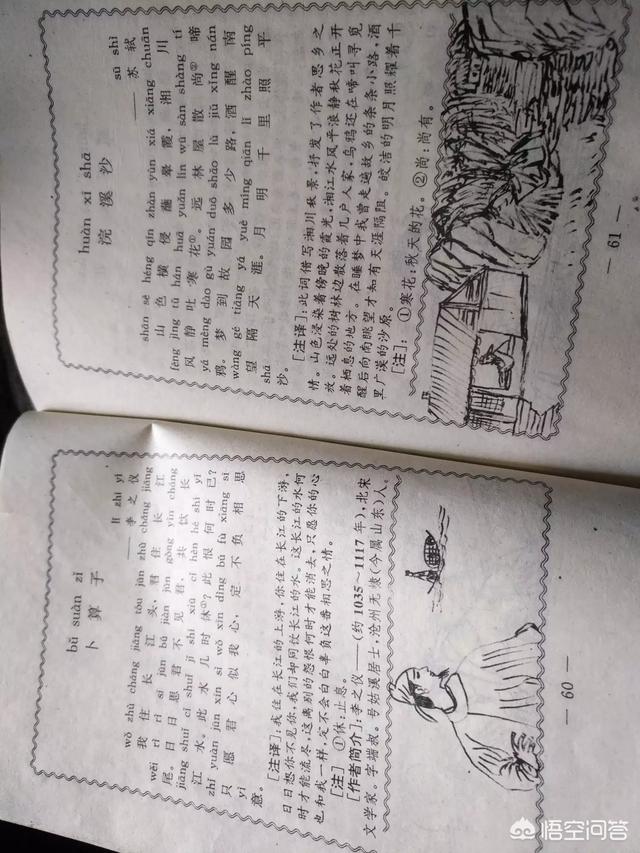 bǔ suàn zǐ
卜 算 子
lǐ zhī yí
——李 之 仪
wǒ zhù cháng jiāng tóu jūn zhù cháng jiāng
我 住 长 江 头,君 住 长 江
wěi rì rì sī jūn bú jiàn jūn gòng yǐn cháng
尾。日 日 思 君 不 见 君,共 饮 长
jiāng shuǐ cǐ shuǐ jǐ shí xiū cǐ hèn hé shí yǐ
江 水。此 水 几 时 休①?此 恨 何 时 已?
zhǐ yuàn jūn xīn sì wǒ xīn dìng bú fù xiāng sī
只 愿 君 心 似 我 心,定 不 负 相 思
yì
意。
[注译]:我住在长江的上游,你住在长江的下游,
日日想你不见你,我们却同饮长江的水。这长江的水何
时才能流尽,这离别的怨恨何时才能消去,只愿你的心
也和我一样,定不会白白辜负这番相思之情。
[注] ①休:止息。
[作者简介]:李之仪——(约 1035～1117 年),北宋
文学家。字端叔。号姑溪居士,沧州无棣(今属山东)人。
— 60 —
huàn xī shā
浣 溪 沙
sū shì
——苏 轼
shān sè héng qīn zhàn yùn xiá xiāng chuān
山 色 横 侵 蘸 晕 霞,湘 川
fēng jìng tǔ hán huā yuǎn lín wū sàn shàng tí
风 静 吐 寒 花①。远 林 屋 散 尚② 啼
yā mèng dào gù yuán duō shǎo lù jiǔ xǐng nán
鸦。梦 到 故 园 多 少 路,酒 醒 南
wàng gé tiāng yá yuè míng qiān lǐ zhào píng
望 隔 天 涯。月 明 千 里 照 平
shā
沙。
[注译]:此词借写湘川秋景,抒发了作者思乡之
情。山色浸染着傍晚的霞光,湘江水风平浪静秋花正开
放。远处的树林边散落着几户人家,乌鸦还在啼叫寻觅
着栖息的地方。在睡梦中我曾走遍故乡的条条小路,酒
醒后向南眺望才知有天涯隔阻。皎洁的明月照耀着千
里广漠的沙原。
[注]: ①寒花:秋天的花。②尚:尚有。
— 61 —
悟空问答